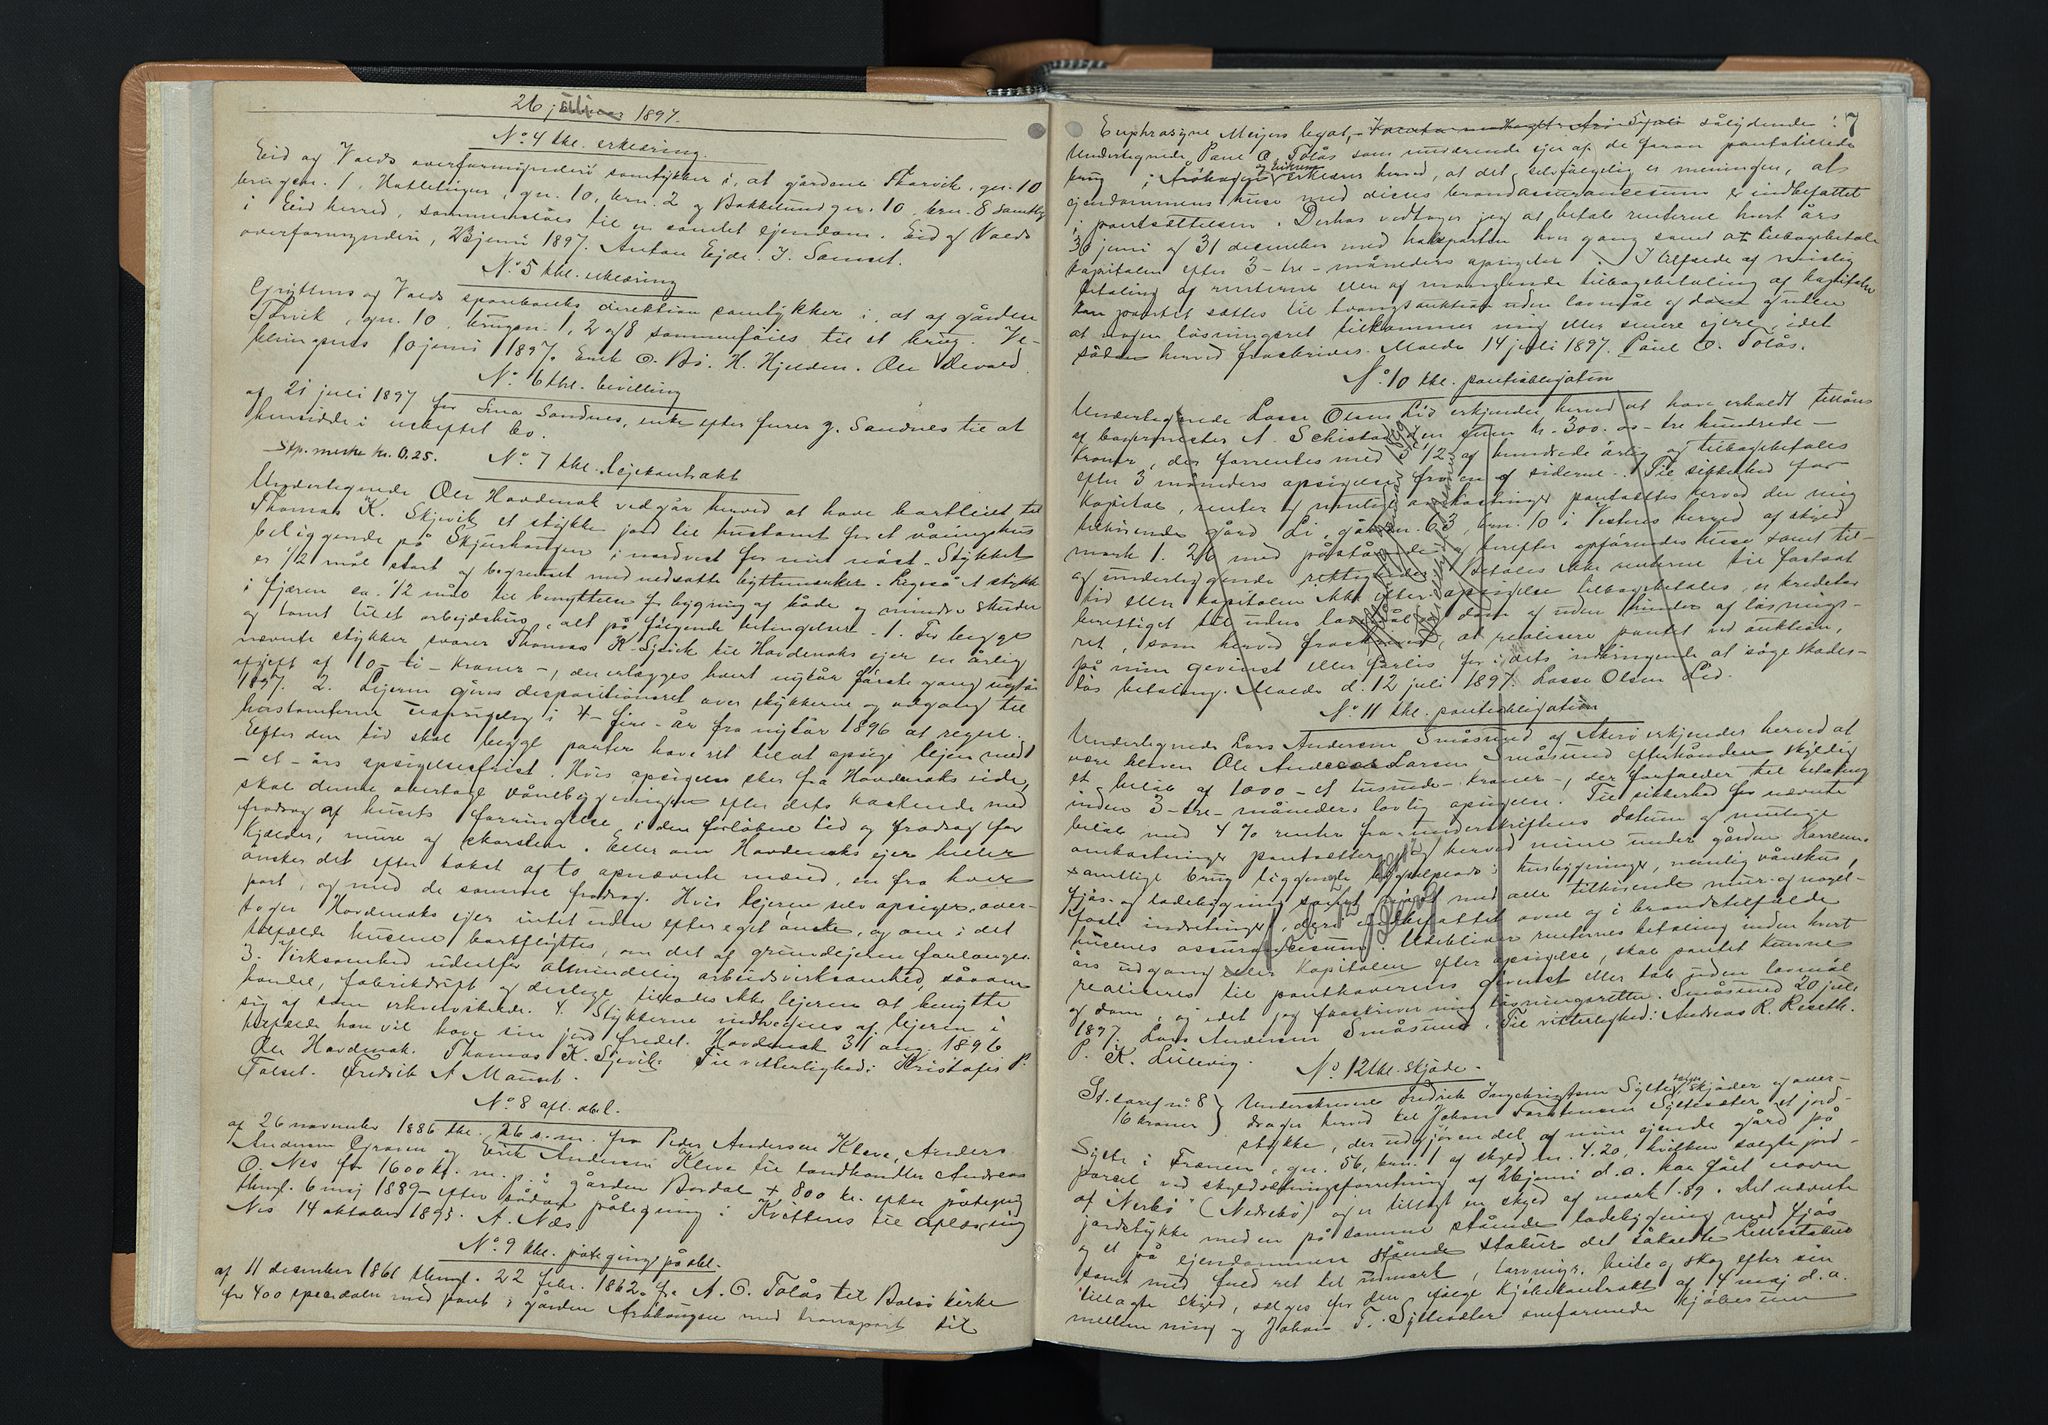 26 juli 1897.
No 4 thl. erklæring.
Eid og Volds overformynderi samtykker i, at gårdene Thorvik, gn. 10
brugsn. 1, Hatlehaugen, gn. 10, brn. 2 og Bakkelund gn. 10, brn. 8 samtlig
i Eid herred, sammenføies til en samlet ejendom. Eid og Volds
overformynderi, 23 juni 1897. Anton Ejde. J. Samset.
No 5 thl. erklæring
Gryttens og Volds sparebanks direktion samtykker i, at af gården
Torvik, gn. 10, brugsn. 1, 2 og 8 sammenføies til et brug. Ve-
blungsnes 10 juni 1897. Emil O. Bö. H. Hjelden. Ole Devold.
No. 6 thl. bevilling
af 21 juli 1897 for Ima Sandnes, enke efter furer J. Sandnes til at
hensidde i uskiftet bo.
Stp. merke kr. 0.25. No. 7 thl. lejekontrakt
Undertegnede Ole Hovdenak vedgår herved at have bortleiet til
Thomas K. Skjevik et stykke jord til hustomt for et våningshus
beliggende på Skjurhaugen i nordvest for mit nöst. Stykket
er 1/2 mål stort og begrenset med nedsatte byttemerker. Ligeså et stykke
i fjæren ca. 1/2 mål til benyttelse for bygning af både og mindre skuder
og tomt til et arbejdshus, alt på fölgende betingelser. 1. For begge
nævnte stykker svarer Thomas K. Sjevik til Hovdenaks ejer en årlig
afgift af 10 - ti - kroner -, der erlægges hvert nytår förste gang nytår
1897. 2. Lejeren gives desposit­ionsret over stykkerne og adgang til
hustomterne uopsigelig i 4 - fire - år fra nytår 1896 at regne.
Efter den tid skal begge parter have ret til at opsige lejen med
- et - års opsigelsesfrist. Hvis opsigelsen sker fra Hovdenaks side,
skal denne overtage vånebygningen efter dets kostende med
fradrag af husets forringelse i den forlöbne tid og fradrag for
kjelder, mure og skorsten. Eller om Hovdenaks ejer heller
önsker det efter takst af to opnævnte mænd, en fra hver
part, og med de samme fradrag. Hvis lejeren selv opsiger, over-
tager Hovdenaks ejer intet uden efter eget önske, og om i det
tilfælde husene bortflyttes, om det af grundejeren forlanges.
3. Virksomhed udenfor almindelig arbeidsvirksomhed, såsom
handel, fabrikdrift og deslige tillades ikke lejeren at benytte
sig af som erhvervskilde. 4. Stykkerne indhegnes af lejeren i
tilfælde han vil have sin jord fredet. Hovdenak 31 aug. 1896
Ole Hovdenak. Thomas K. Sjevik. Til vitterlighed: Kristofer P.
Talset. Fredrik A. Mauset.
No. 8 afl. obl.
af 26 november 1886 thl. 26 s.m. fra Peder Andersen Kleve, Anders
Andersen Groven og Erik Andersen Kleve til landhandler Andreas
O. Nes for 1600 kr. m. p. i gården Bordal + 800 kr. efter påtegning
thingl. 6 maj 1889 - efter sådan påtegning: Kvitteres til aflösning
Nes 14 oktober 1893. A. Næs
No. 9 thl. påtegning på obl.
af 11 desember 1861 thingl. 22 febr. 1862 fra A. O. Tolås til Bolsö kirke
for 400 speciedaler med pant i gården Aröhaugen med transport til
7
Euphrosyne Meijers legat, sålydende:
Undertegnede Paul O. Tolås som nuværende ejer af de foran pantstillede
brug i Aröhaugen erklærer herved, at det selvfölgelig er meningen, at
ejendommens huse med disses brandassurancesum er indbefattet
i pantsættelsen. Derhos vedtager jeg at betale renterne hvert års
30 juni og 31 desember med halvparten hver gang samt at tilbagebetale
kapitalen efter 3 - tre - måneders opsigelse. I tilfælde af uvislig
betaling af renterne eller af manglende tilbagebetaling af kapitalen
kan pantet sættes til tvangsauktion uden lovmål og dom og uden
at nogen lösningsret tilkommer mig eller senere ejere, idet
sådan herved fraskrives. Molde 14 juli 1897. Paul O. Tolås.
No 10 thl. pantobligation
Undertegnede Lasse Olsen Lid erkjender herved at have erholdt tillåns
af bagermester A. Schistad den sum kr. 300.00 - tre hundrede -
kroner, der forrentes med 1/2 af hundrede årlig og tilbagebetales
efter 3 måneders opsigelse fra en af siderne. Til sikkerhed for
kapital, renter og mulige omkostninger pantsættes herved den mig
tilhörende gård Li, gårdsn. 63, brn. 10 i Vestnes herred af skyld
mark 1.26 med påstående og herefter opförendes huse samt til-
og underliggende rettigheder. Betales ikke renterne til fastsat
tid eller kapitalen ikke efter opsigelse tilbagebetales, er kreditor
berettiget til uden lovmål og dom og uden hinder af lösnings-
ret, som herved fraskrives, at realisere pantet ved auktion,
på min gevinst eller forlis for i dets indbringende at söge skades-
lös betaling. Molde d. 12 juli 1897. Lasse Olsen Lid.
No 11 thl. pantobligation
Undertegnede Lars Andersen Småsund af Akerö erkjender herved at
være bleven Ole Andreas Larsen Småsund efterhånden skyldig
et belöb af 1000 - et tusende - kroner -, der forfalder til betaling
inden 3 - tre - måneders lovlig opsigelse. Til sikkerhed for nævnte
belöb med 4 % renter fra underskriftens datum og mulige
omkostninger pantsætter jeg herved mine under gården Horrem
samtlige brug liggende husbygninger, nemlig vånehus,
fjös- og ladebygning samt nöst med alle tilhörende mur- og nagel-
faste indretninger, deri indbefattet ovne og i brandstilfælde
husenes assurancesum. Udebliver renternes betaling inden hvert
års udgang eller kapitalen efter opsigelse, skal pantet kunne
realiseres til panthaverens gevinst eller tab uden lovmål
og dom, og idet jeg fraskriver mig lösningsretten. Småsund 20 juli
1897. Lars Andersen Småsund. Til vitterlighed: Andreas R. Reseth.
P. K. Lillevig.
No. 12 thl. skjöde.
St. taref n. 8 } Underskrevne Fredrik Ingebrigtsen Sylte sælger, skjöder og over-
16 kroner } drager herved til Johan Torstensen Syltesæter et jord-
stykke, der udgjör en del af min ejende gård på
Sylte i Frænen, gn. 56, brn. 1 af skyld m. 4.20, hvilken solgte jord-
parsel ved skyldsætningsforretning af 26 juni d.a. har fået navn
af "Nerbö" (Nedrebö) og er tillagt en skyld af mark 1.89. Det nævnte
jordstykke med en på samme stående ladebygning med fjös
og et på ejendommen stående stabur det såkaldte
samt med fuld ret til udmark, torvning, beite og skog efter sin
tillagte skyld, sælges for den ifölge kjöbekontrakt af 4 maj d.a.
mellem mig og Johan T. Syltesæter omforenede kjöbesum